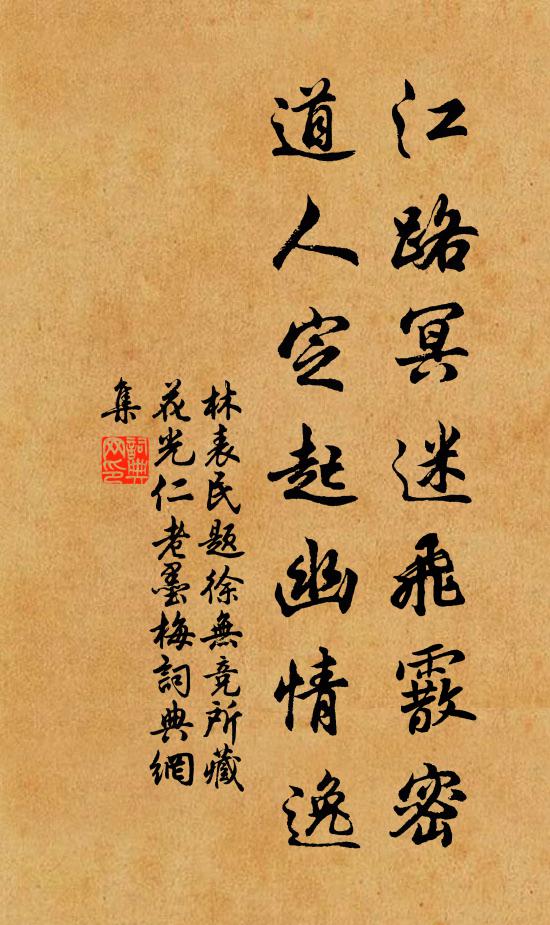 江路冥迷飛霰密
道人定起幽情逸
林表民題徐無竞所藏
花光仁老墨梅詞典網
集
詞典網